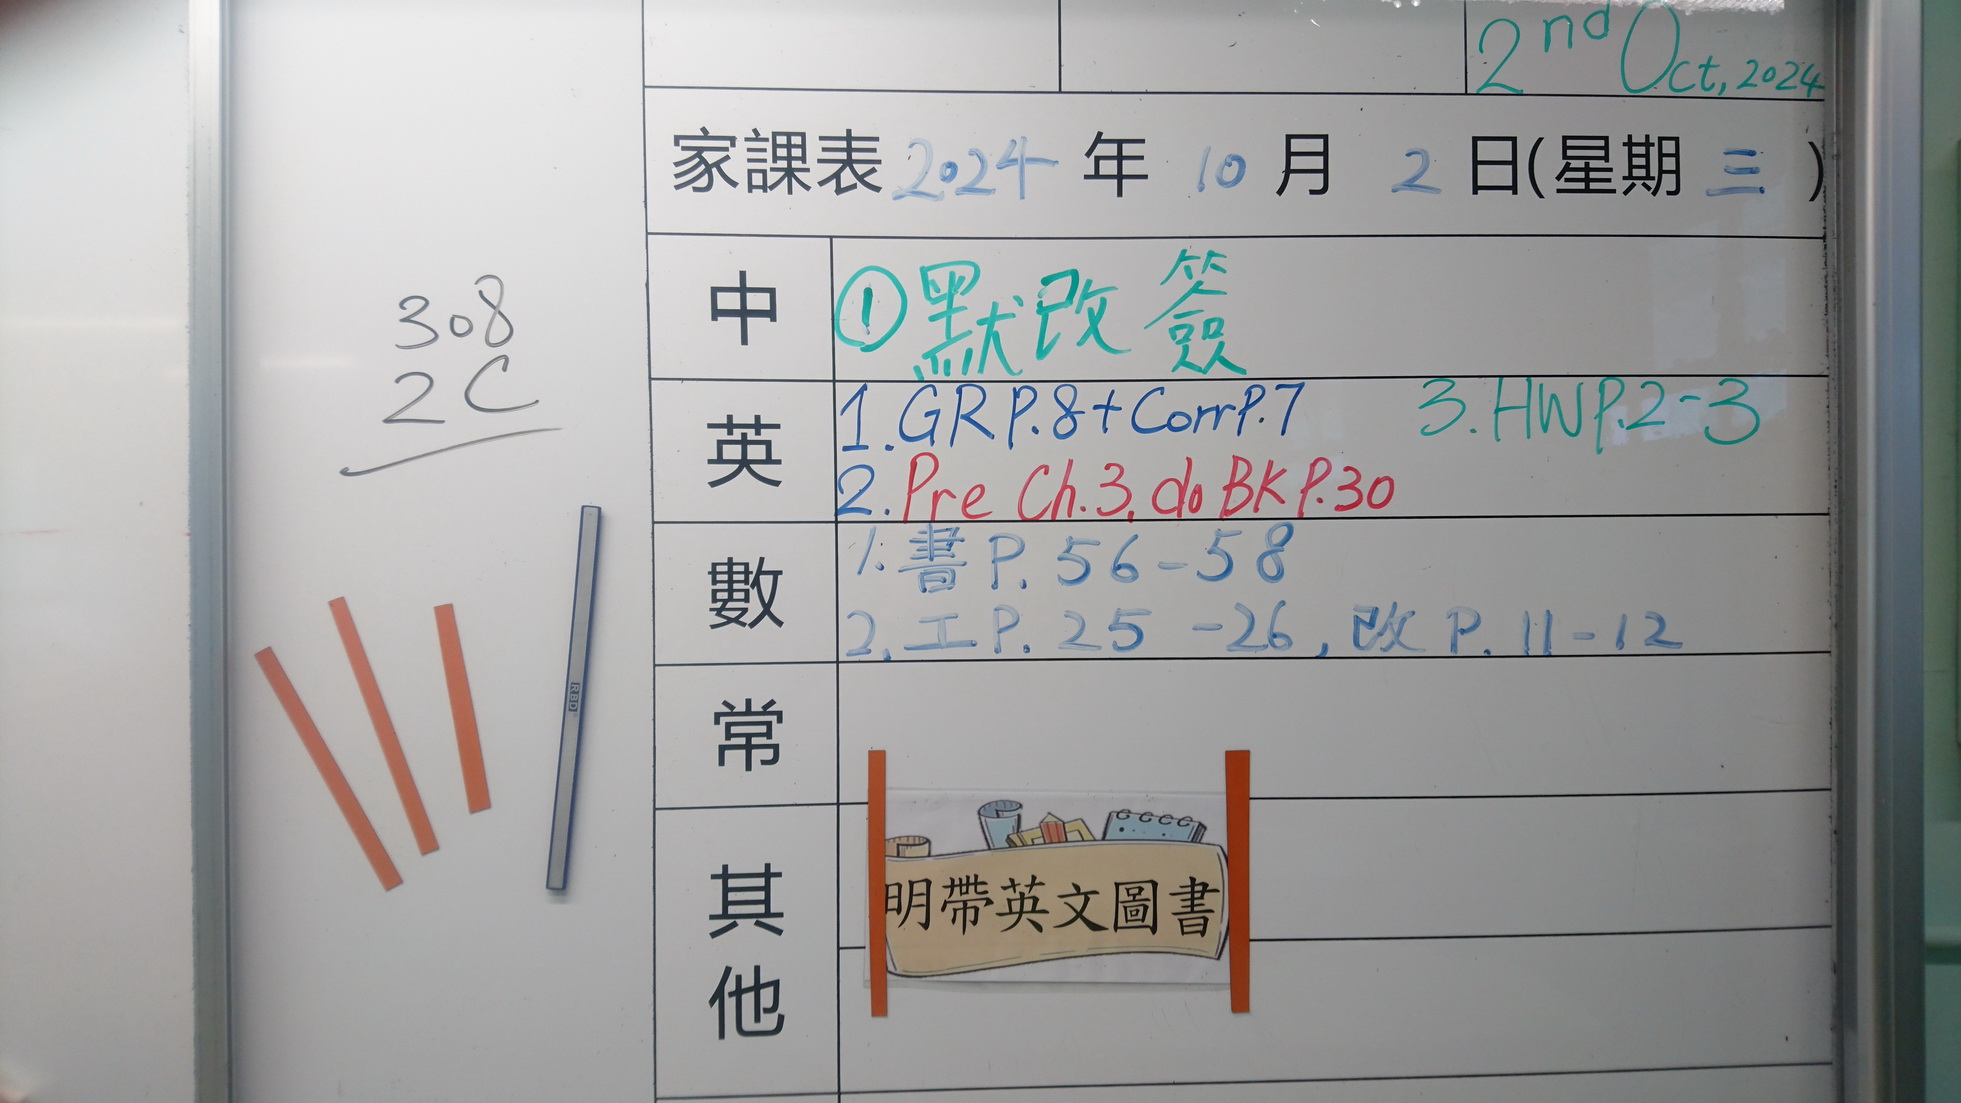 2nd Oct, 2024
家課表 2024 年 10 月 2 日(星期 三 )
308
2C
中 ①默改簽
英 1. GR P.8 + Corr P.7 3. HW P.2-3
2. Pre Ch.3, do BK P.30
數 1. 書 P. 56-58
2. 工 P. 25-26, 改 P. 11-12
常
其他
明帶英文圖書